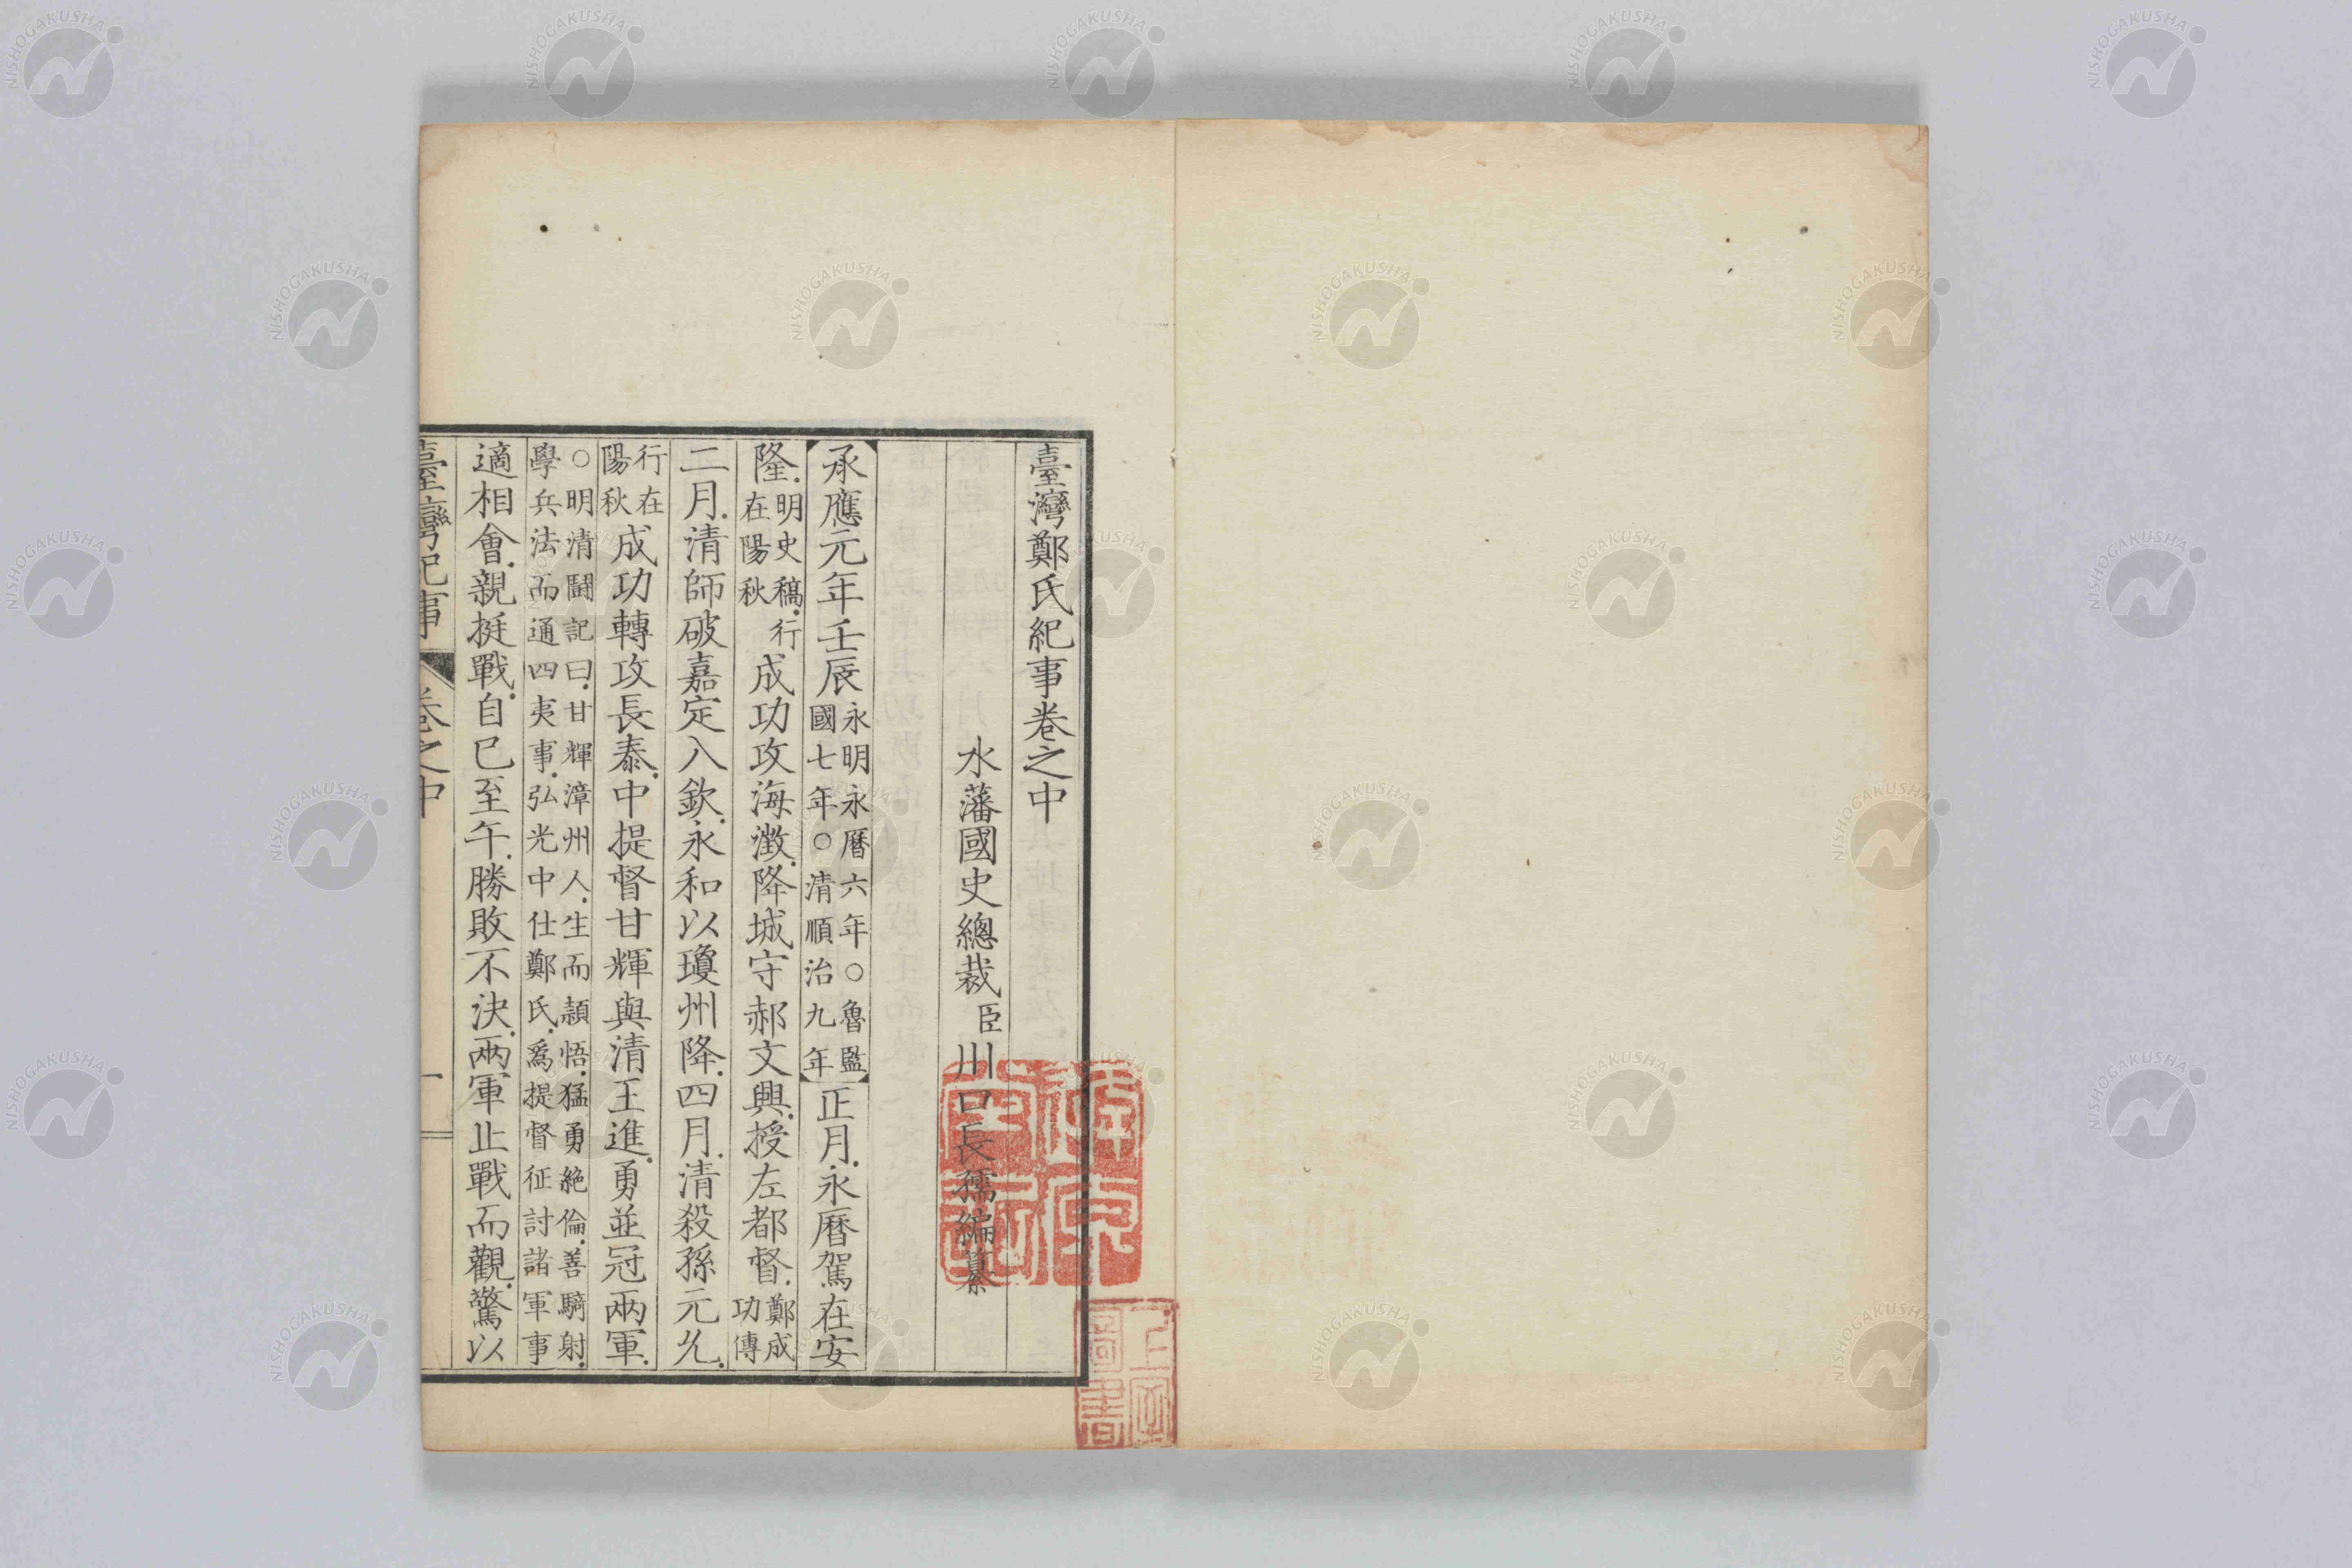 臺灣鄭氏紀事卷之中
水藩國史總裁臣川口長孺編纂
承應元年壬辰永明永曆六年○魯監國七年○清順治九年正月永曆駕在安
隆明史稿行在陽秋成功攻海澂降城守郝文興授左都督鄭成功傳
二月清師破嘉定入欽永和以瓊州降四月清殺孫元允
行在陽秋成功轉攻長泰中提督甘輝與清王進勇並冠兩軍
○明清鬪記曰甘輝漳州人生而頴悟猛勇絶倫善騎射學兵法而通四夷事弘光中仕鄭氏爲提督征討諸軍事
適相會親挺戰自巳至午勝敗不決兩軍止戰而觀驚以
臺灣紀事 卷之中 一
NISHOGAKUSHA